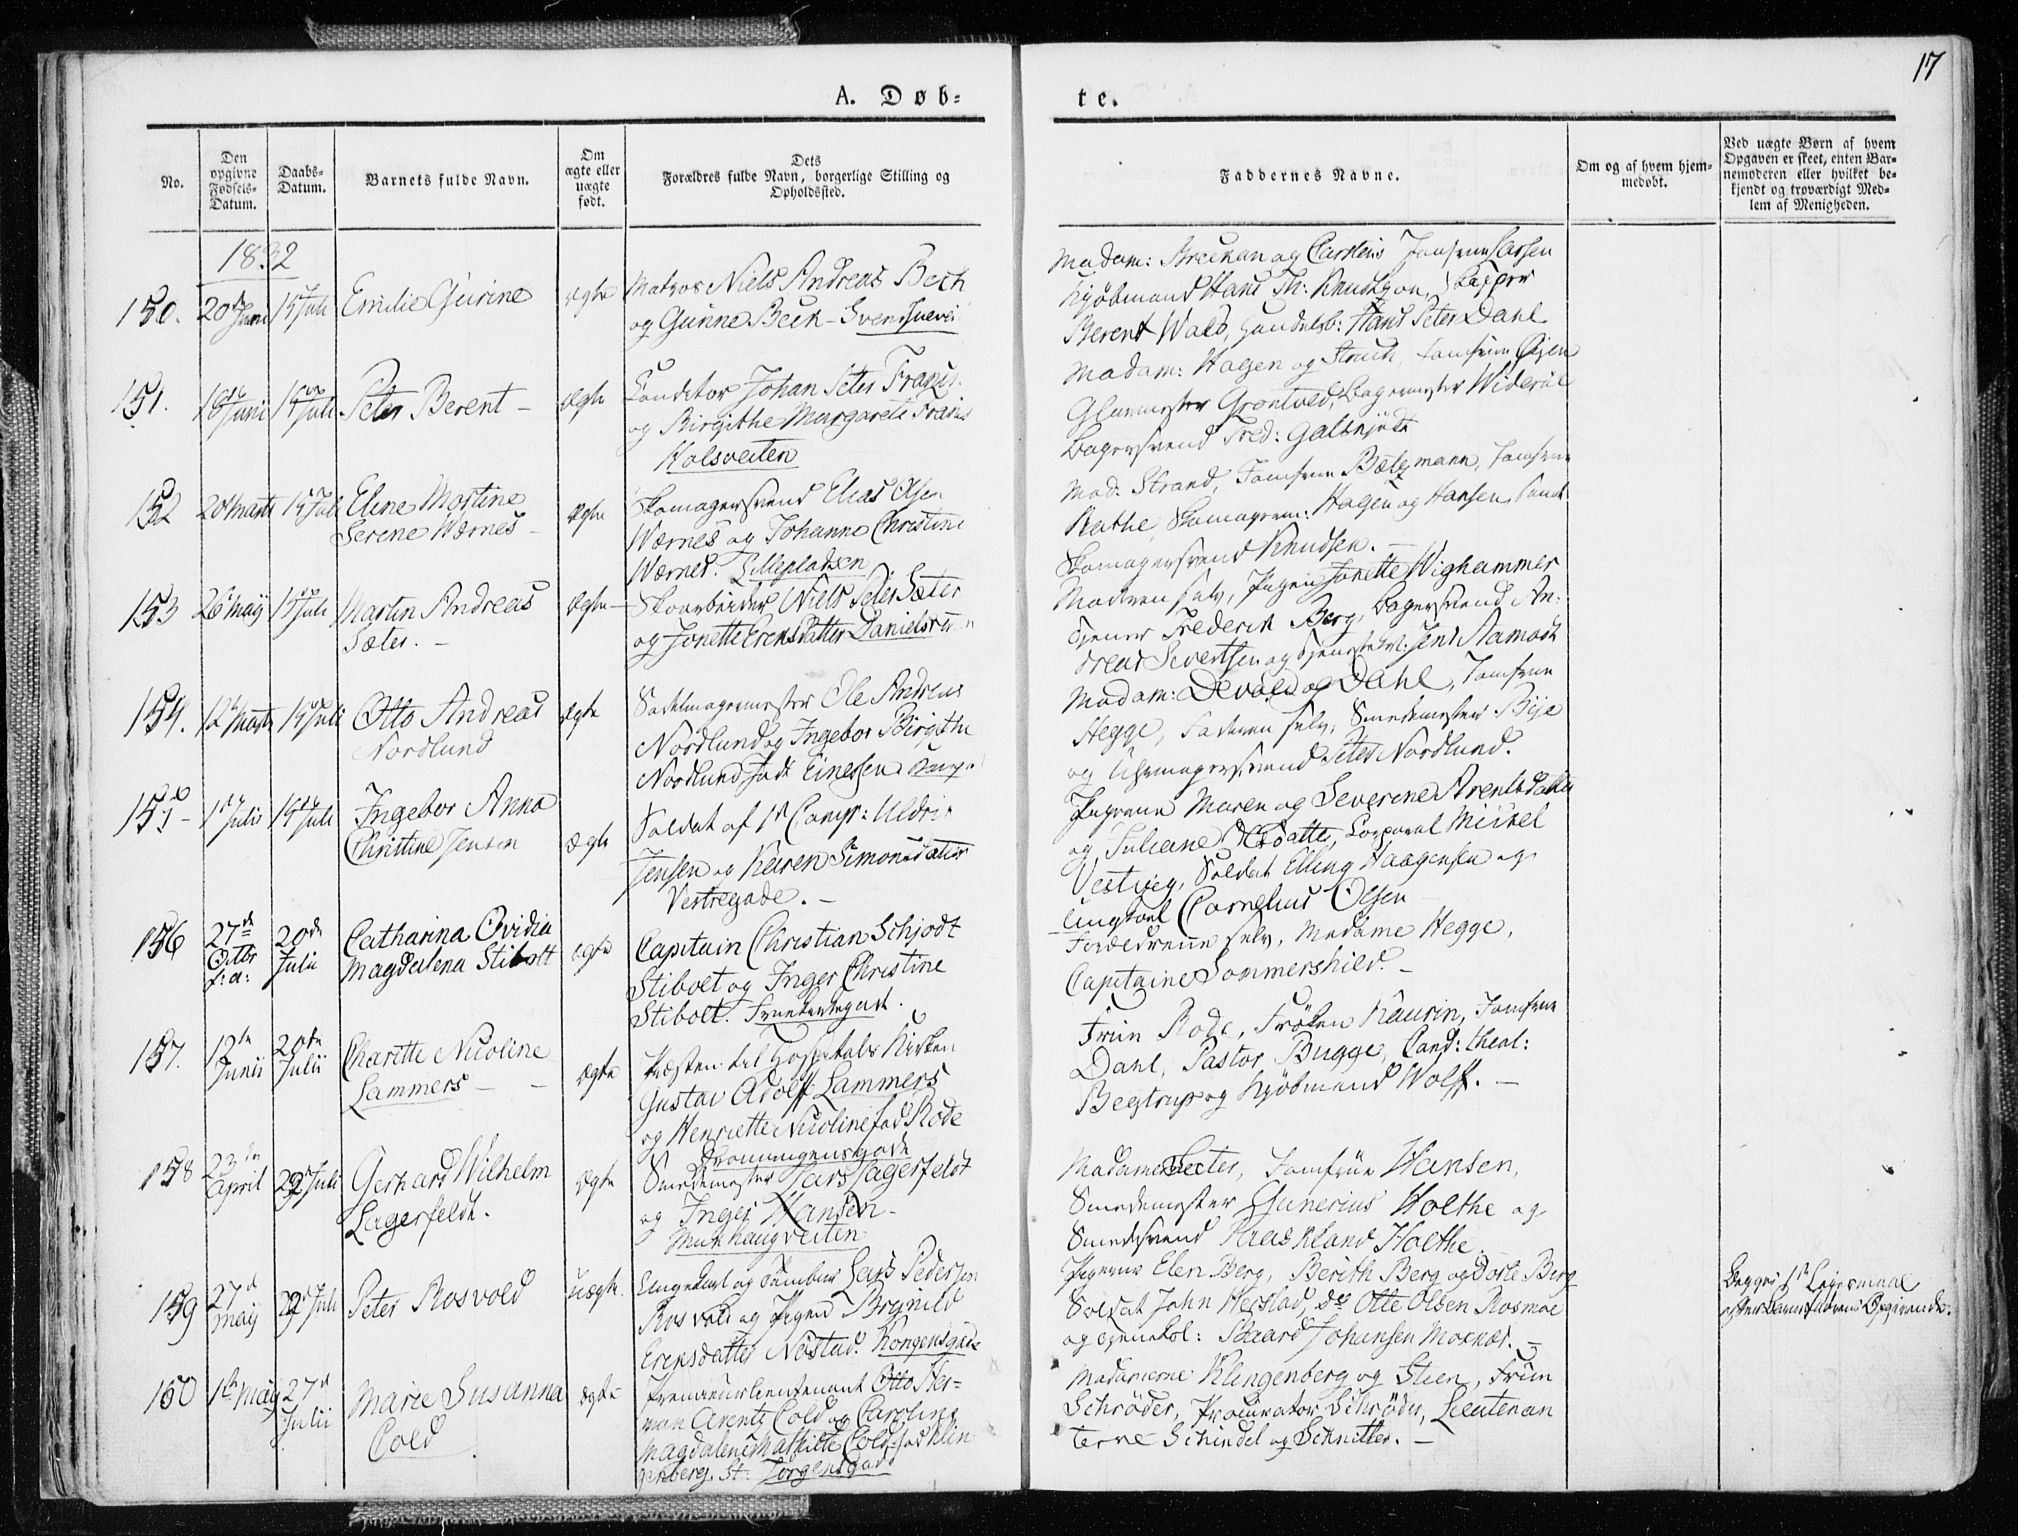 17
A. Døb-
te.
No.
Den opgivne Fødsels-Datum.
Daabs-Datum.
Barnets fulde Navn.
Om ægte eller uægte født.
Dets Forældres fulde Navn, borgerlige Stilling og Opholdssted.
Faddernes Navne.
Om og af hvem hjemmedøbt.
Ved uægte Børn af hvem
Opgaven er skeet, enten Bar-
nemoderen eller hvilket be-
kjendt og troværdigt Med-
lem af Menigheden.
1832
150. 20 Juni 15 Juli Emilie Gurine ægte
Matros Niels Andreas Beck
og Gunne Beck
Madam: og Larsen
Kjøbmand Hans Th: Knudtzon, Skipper
Berent Wald, Handelsb: Hans Peter Dahl
151. 16 Junii 15 Juli Peter Berent – ægte
Conditor Johan Peter Franzis
og Birgithe Margarete
Holsveiten
Madam: Hagen og Jomfrue
Glarmester Grøntved, Bagermester Widerøe
Bagersvend Fred:
152 20 Marts 15 Juli Eline Martine
Serene Wærnes – ægte
Skomagersvend Elias Olsen
Wærnes og Johanne Christine
Wærnes. Lilleplatsen
Mad: Strand, Jomfrue Bætzmann, Jomfrue
Rathe, Skomagerm: Hagen og Hansen, samt
Skomagersvend Knudsen. –
153 26 Maij 15 Juli Martin Andreas
Sæter. – ægte
Skoarbeider Niels Peter Sæter
og Jonette Eriksdatter
Moderen selv, Pigen Jonette Wighammer
Tjener Frederik Berg, Bagersvend An-
dreas Severtsen og Jens Aamodt
154. 12 Marts 15 Juli Otto Andreas
Nordlund ægte
Sadelmagermester Ole Andreas
Nordlund og Ingebor Birgithe
Nordlund født Einersen
Madam: Devold og Dahl, Jomfrue
Hegge, Faderen selv, Smedemester Bye
og Uhrmagersvend Peter Nordlund.
155 – 1 Julii 15 Juli Ingebor Anna
Christine Jensen ægte
Soldat af 1 Comp: Uldrik
Jensen og Karen Simonsdatter
Vestregade. –
Pigerne Maren og Severine Arentsdatter
og Juliane Corporal Mikel
Vestvig, Soldat Elling Haagensen og
Ungkarl Cornelius Olsen
156 27de Octbr f:a: 20de Julii Catharina Ovidia
Magdalena Stibolt ægte
Capitain Christian Schjødt
Stibolt og Inger Christine
Stibolt.
Forældrene selv, Madame Hegge,
Capitaine Sommerschild. –
157. 12te Junii 20de Julii Charitte Nicoline
Lammers – – ægte
Præsten til Hospitals Kirken
Gustav Adolf Lammers
og Henriette Nicoline fød Rode
Dronningensgade
Frue Rode, Frøken Kaurin, Jomfrue
Dahl, Pastor Bugge, Cand: theol:
Begtrup og Kjøbmand Wolff. –
158 23de April 22 Juli Gerhard Wilhelm
Lagerfeldt. ægte
Smedemester Lars Lagerfeldt
og Inger Hansen –
Munkhaugveiten
Madame Sæter, Jomfrue Hansen,
Smedemester Gunerius Holthe og
Smedsvend Holthe.
159 27 Maij 22 Juli Peter Rosvold uægte
Ungekarl og Tambur Lars Pedersen
Rosvold og Pigen Brynild
Eriksdatter Næstad. Kongensgade
Pigerne Elen Berg, Berith Berg og Dorte Berg
Soldat John Herstad, do Otte Olsen Rosmoe
og Baard Johansen Moknæs. –
Begges 1 Leiermaal
efter Barnefaderens Opgivende.
160 1te Maij 27 Julii Marie Susanna
Cold ægte
Premieurlieutenant Otto Her-
man Arentz Cold og Caroline
Magdalene Mathilte Cold fød Klin
genberg. St: Jørgensgade
Madamerne Klingenberg og Steen, Frue
Schrøder, Procurator Schrøder, Lieutenan
terne Schindel og Schnitler. –